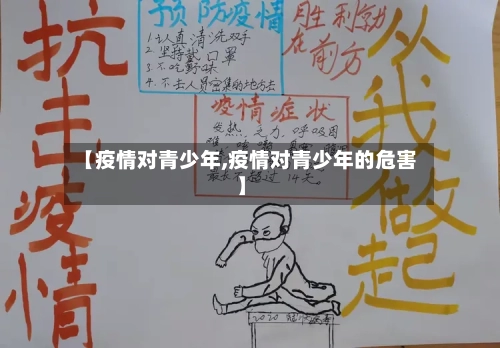 抗击疫情
预防疫情
1.认真清洗双手
2.坚持戴口罩
3.不吃野味
4.不去人员密集的地方去
胜利就
在前方
从我做起
疫情症状
发热,乏力,呼吸困
【疫情对青少年,疫情对青少年的危害
】
超过14天。
2020